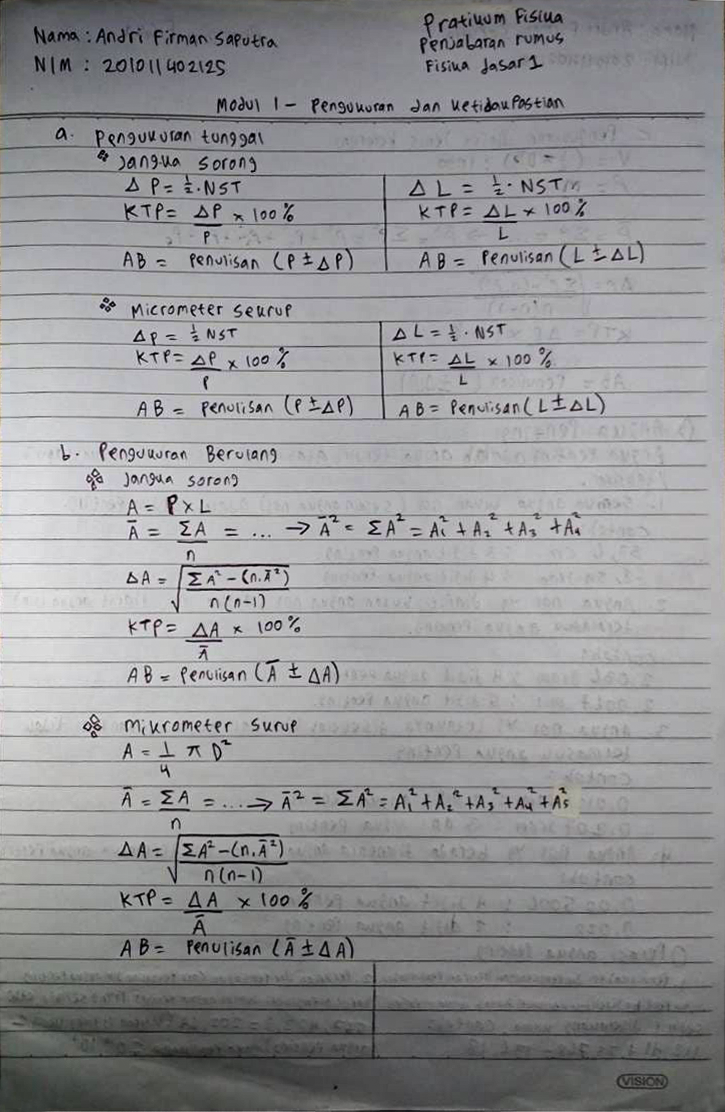 Nama : Andri Firman Saputra
NIM : 201011402125
Pratikum Fisika
Penjabaran rumus
Fisika dasar 1
Modul 1 - Pengukuran dan Ketidak Pastian
a. Pengukuran tunggal
Jangka Sorong
Δ P = 1/2 · NST
KTP = ΔP/P x 100 %
AB = Penulisan (P ± ΔP)
Δ L = 1/2 · NST
KTP = ΔL/L x 100 %
AB = Penulisan (L ± ΔL)
Micrometer Sekrup
ΔP = 1/2 NST
KTP = ΔP/P x 100 %
AB = Penulisan (P ± ΔP)
Δ L = 1/2 · NST
KTP = ΔL/L x 100 %
AB = Penulisan (L ± ΔL)
b. Pengukuran Berulang
Jangka sorong
A = P x L
Ā = ΣA/n = ... → Ā² = ΣA² = A₁² + A₂² + A₃² + A₄²
ΔA = √(ΣA² - (n.Ā²)/n(n-1))
KTP = ΔA/Ā x 100 %
AB = Penulisan (Ā ± ΔA)
Mikrometer Surup
A = 1/4 π D²
Ā = ΣA/n = ... → Ā² = ΣA² = A₁² + A₂² + A₃² + A₄² + A₅²
ΔA = √(ΣA² - (n.Ā²)/n(n-1))
KTP = ΔA/Ā x 100 %
AB = Penulisan (Ā ± ΔA)
VISION